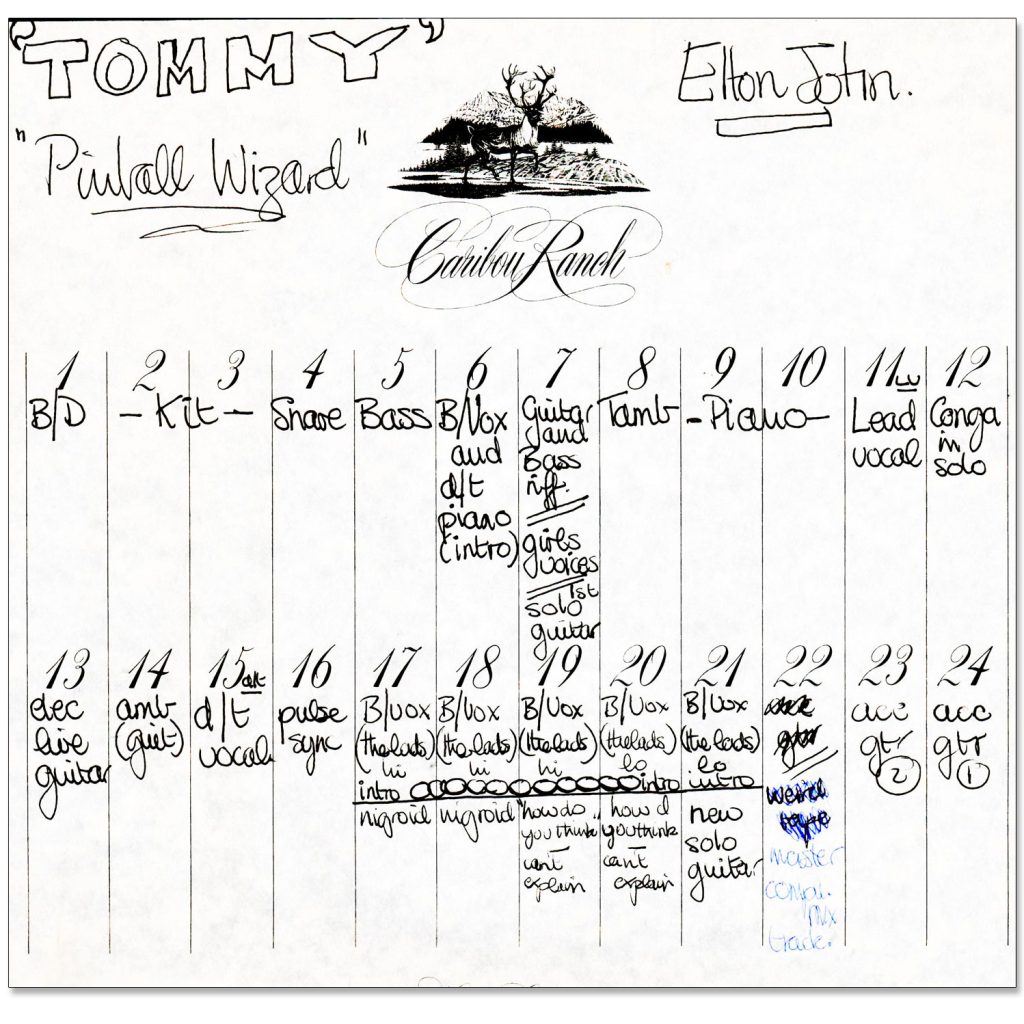 "TOMMY"
Elton John.
"Pinball Wizard"
Caribou Ranch
1 2 3 4 5 6 7 8 9 10 11 12
B/D
- Kit -
Snare
Bass
B/Vox
and
d/t
piano
(intro)
guitar
and
Bass
riff.
girls
voices
1st
solo
guitar
Tamb
- Piano -
Lead
vocal
Conga
in
solo
13 14 15 16 17 18 19 20 21 22 23 24
elec
live
guitar
amb
(guit)
d/t
vocal
pulse
sync
B/vox
(the lads)
hi
intro
nigroid
B/vox
(the lads)
hi
nigroid
B/vox
(the lads)
hi
"how do
you think"
can't
explain
B/vox
(the lads)
lo
intro
how d
you think
can't
explain
B/vox
(the lads)
lo
intro
new
solo
guitar
gtr
weird
tape
master
mix
acc
gtr
2
acc
gtr
1